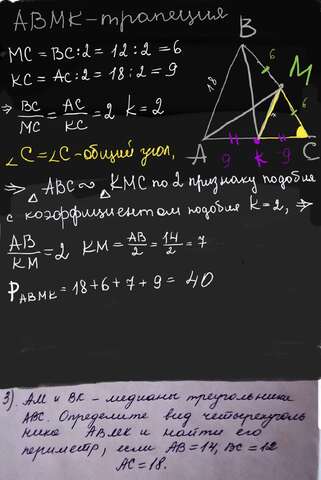 ABMK-трапеция
MC = BC:2 = 12:2 = 6
KC = AC:2 = 18:2 = 9
⇒ BC/MC = AC/KC = 2 k = 2
∠C=∠C-общий угол,
⇒ △ABC ∾ △KMC по 2 признаку подобия
с коэффициентом подобия k=2, ⇒
AB/KM = 2 KM = AB/2 = 14/2 = 7
P ABMK = 18+6+7+9 = 40
B
6
M
18
6
A
K
C
9
9
3). AM и BK - медианы треугольника
ABC. Определите вид четырехуголь
ника ABMK и найти его
периметр, если AB=14, BC=12
AC=18.